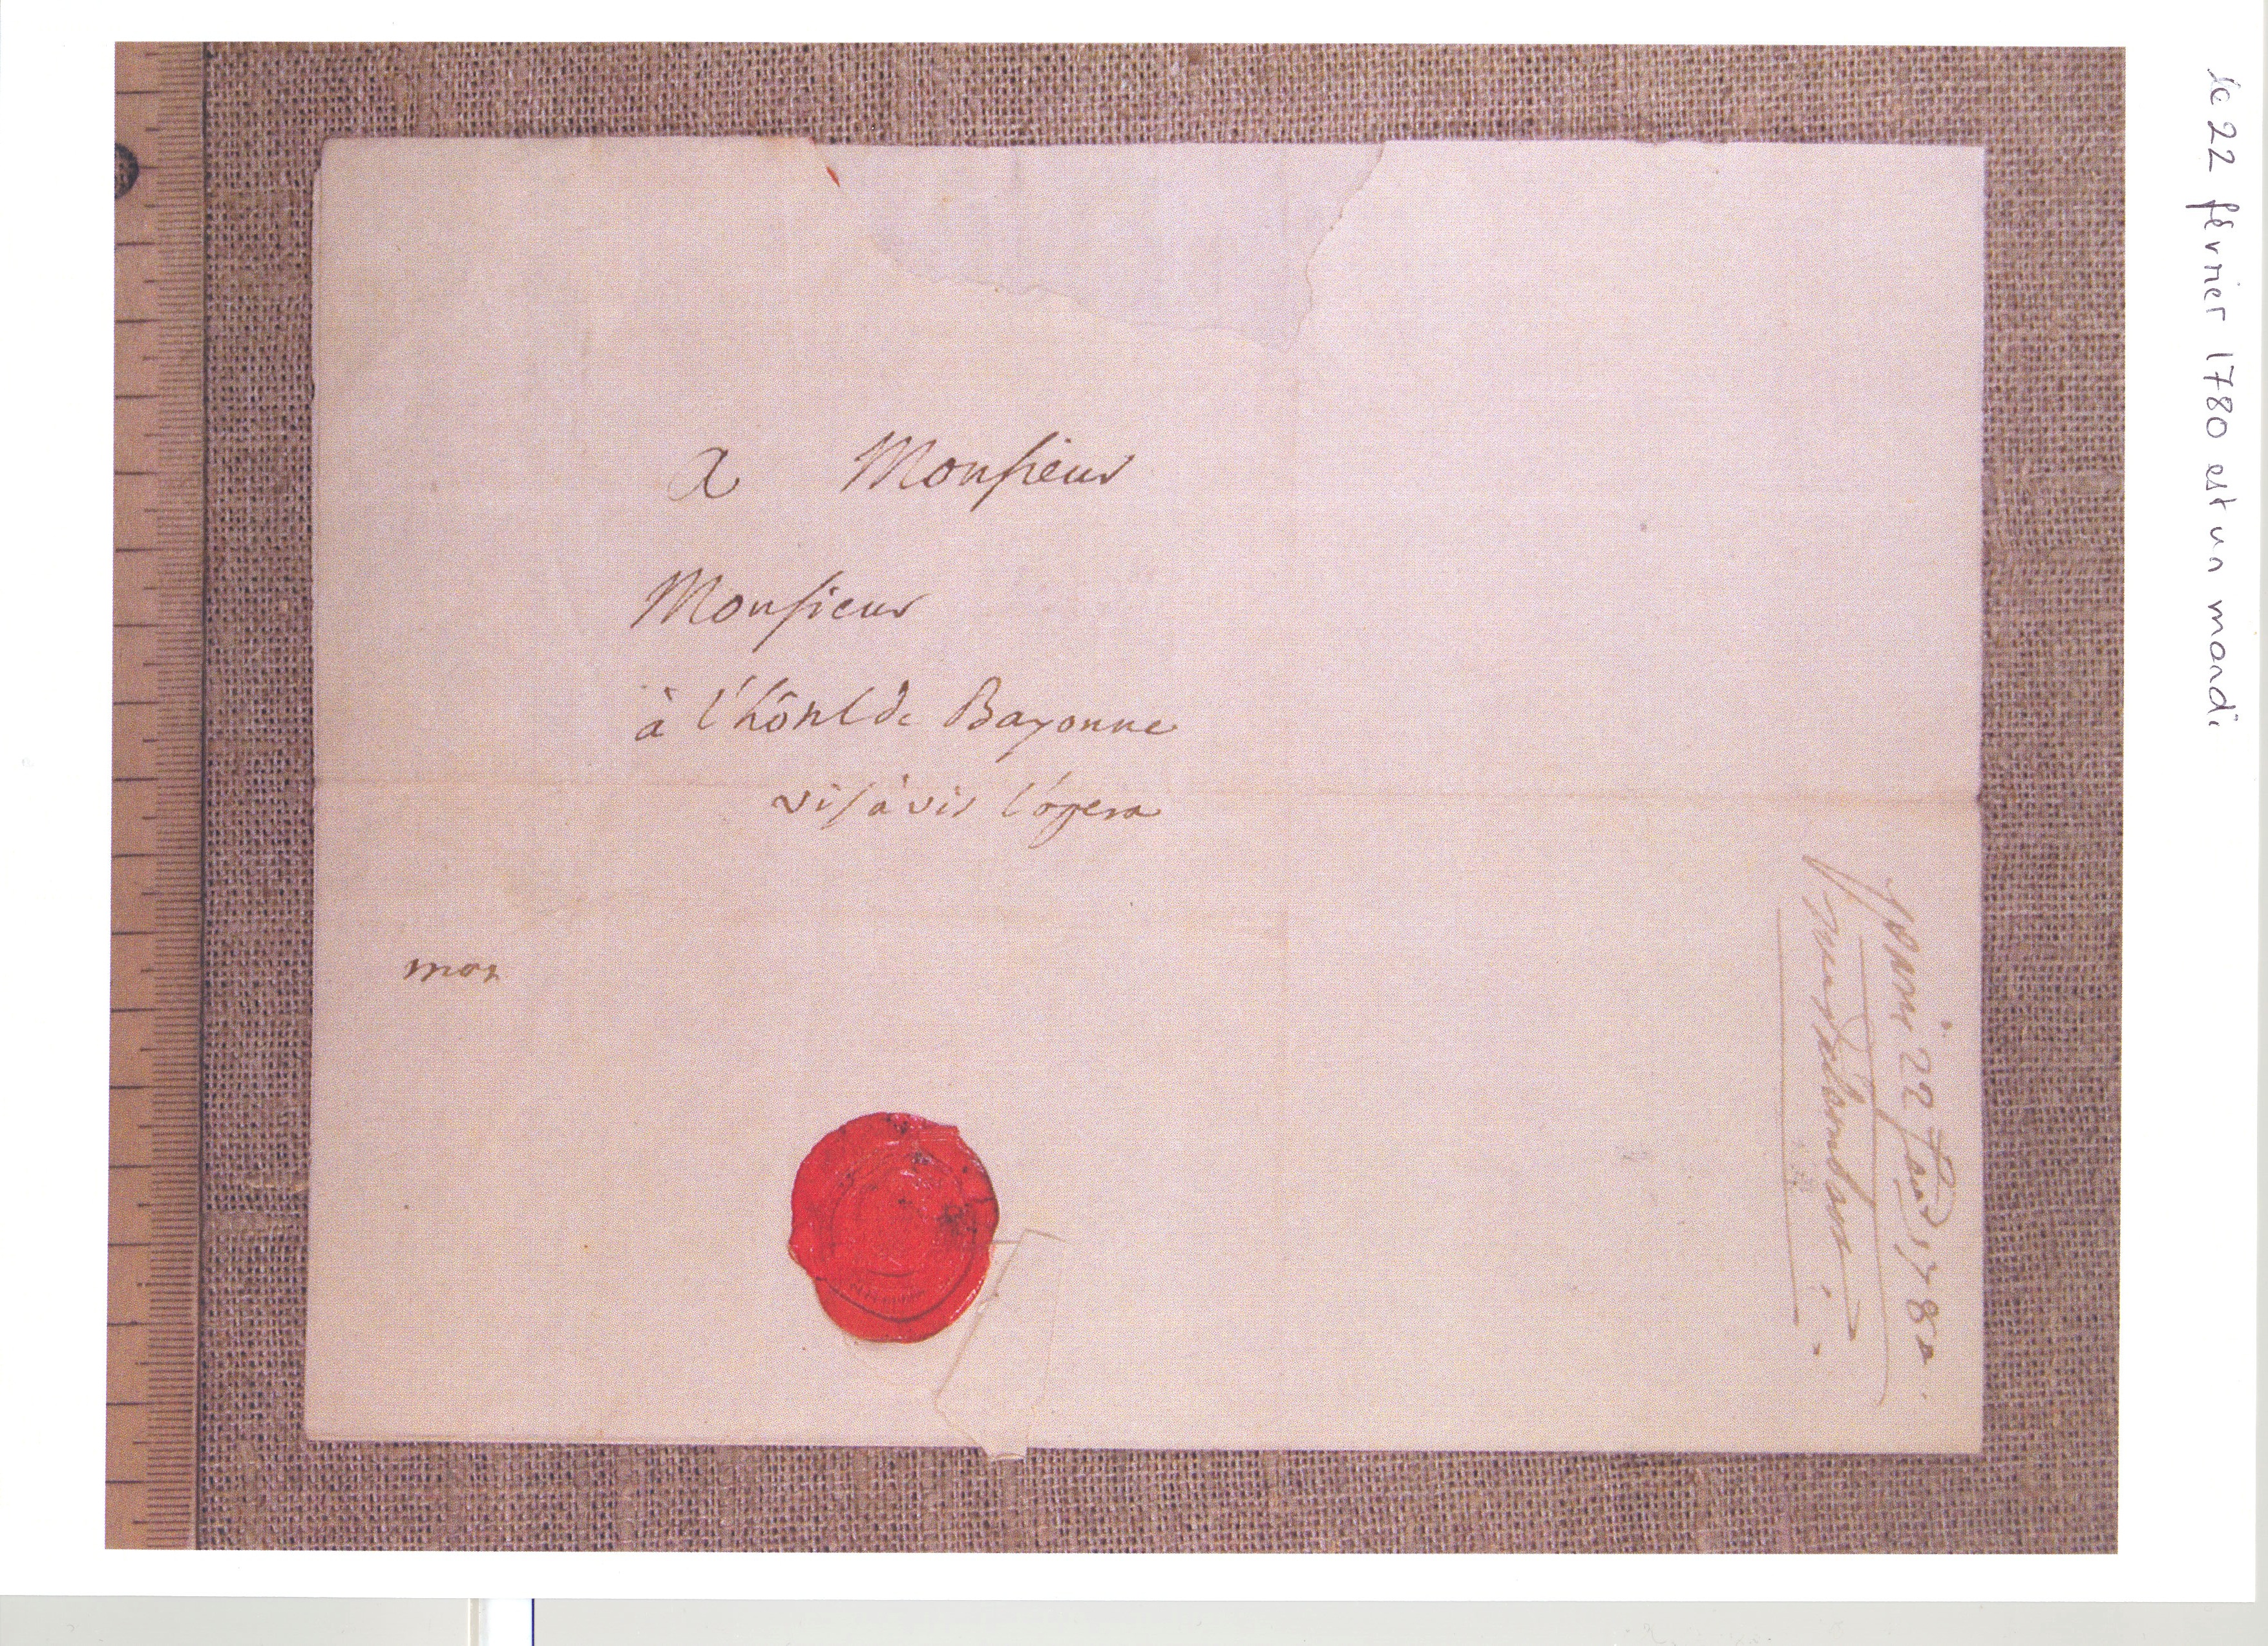 A Monsieur
Monsieur
à l'hôtel de Bayonne
vis à vis l'opera
mon
22 1780
le 22 février 1780 est un mardi